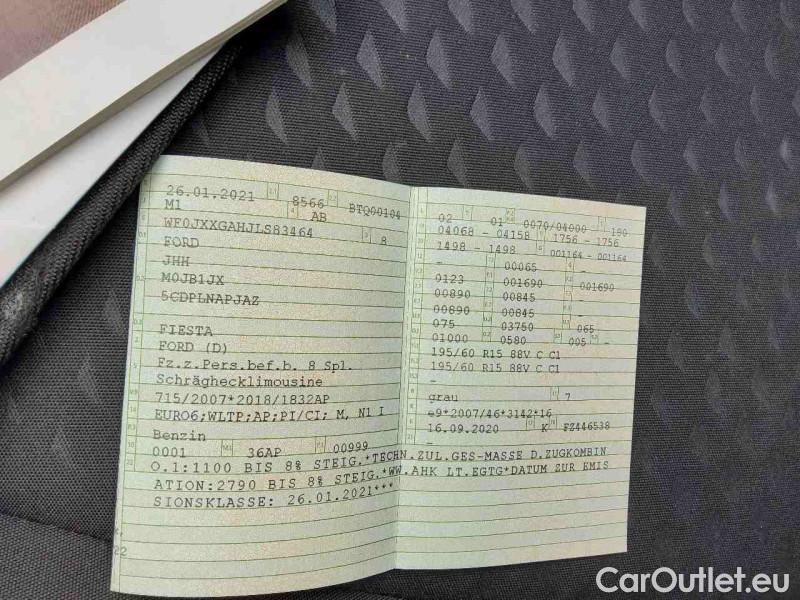 26.01.2021 8566 BTQ00104
M1 AB
WF0JXXGAHJLS83464 8
FORD
JHH
M0JB1JX
5CDPLNAPJAZ
FIESTA
FORD (D)
Fz.z.Pers.bef.b. 8 Spl.
Schräghecklimousine
715/2007*2018/1832AP
EURO6;WLTP;AP;PI/CI; M, N1 I
Benzin
0001 36AP 00999
02 01 0070/04000 180
04068 - 04158 1756 - 1756
1498 - 1498 001164 - 001164
- 00065 -
0123 001690 001690
00890 00845 -
00890 00845 -
075 03750 065
01000 0580 005 -
195/60 R15 88V C C1
195/60 R15 88V C C1
-
grau 7
e9*2007/46*3142*16
16.09.2020 K FZ446538
-
O.1:1100 BIS 8% STEIG.*TECHN.ZUL.GES-MASSE D.ZUGKOMBIN
ATION:2790 BIS 8% STEIG.*WW.AHK LT.EGTG*DATUM ZUR EMIS
SIONSKLASSE: 26.01.2021***
22
CarOutlet.eu